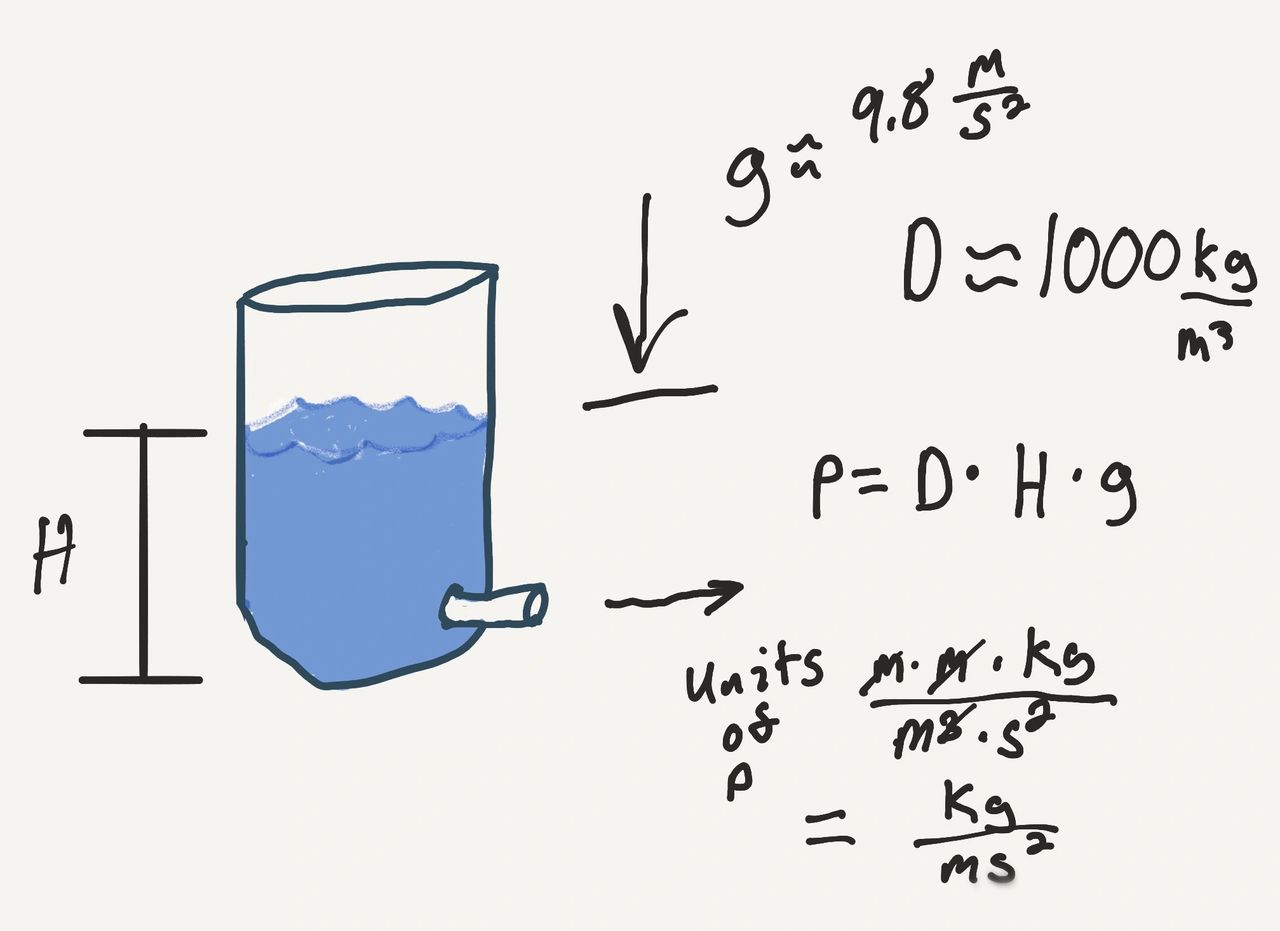 g ≈ 9.8 m/s²
D ≈ 1000 kg/m³
H
P = D · H · g
Units of P m · m · kg / m³ · s²
= kg / ms²